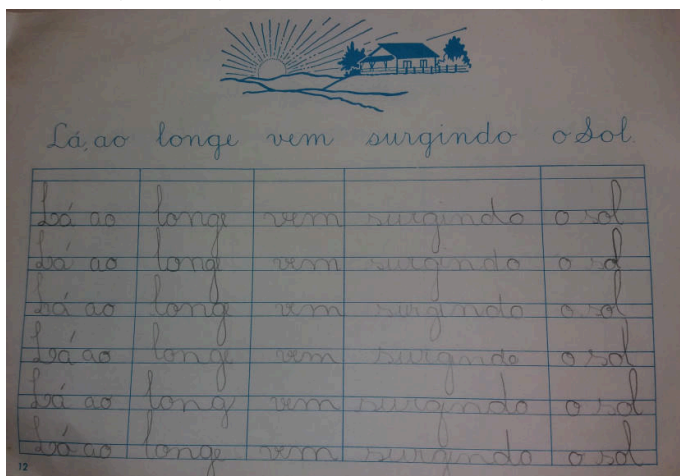 Lá, ao longe vem surgindo o Sol.
Lá ao longe vem surgindo o sol
Lá ao longe vem surgindo o sol
Lá ao longe vem surgindo o sol
Lá ao longe vem surgindo o sol
Lá ao long vem surgindo o sol
Lá ao longe vem surgindo o sol
12